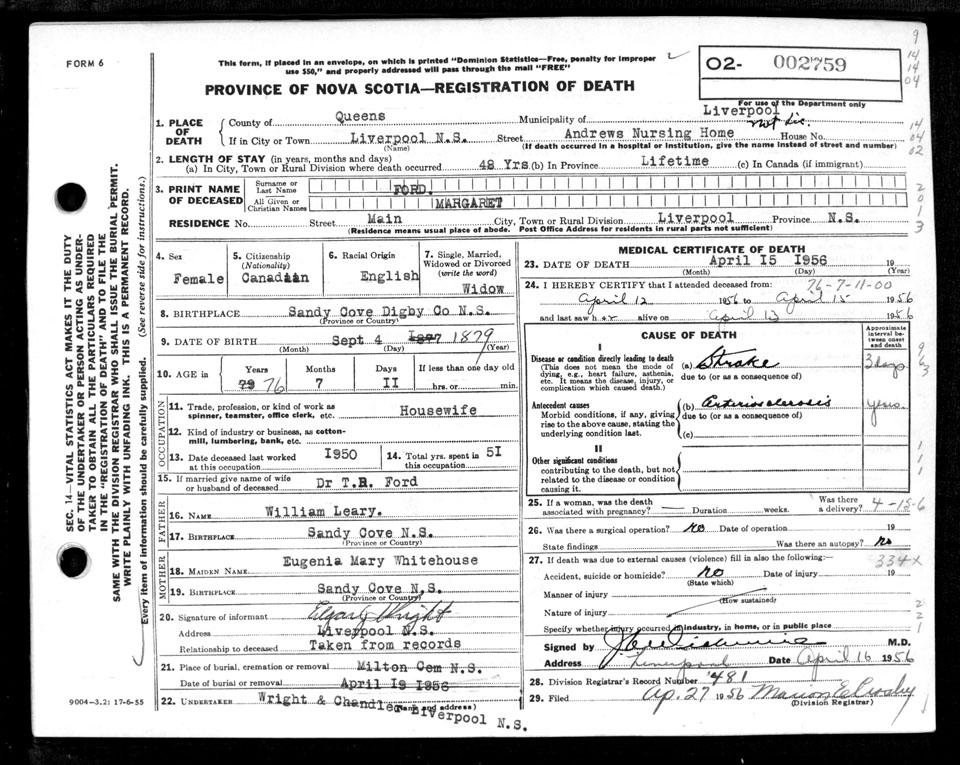 FORM 6
This form, if placed in an envelope, on which is printed "Dominion Statistics—Free, penalty for improper
use $50," and properly addressed will pass through the mail "FREE"
PROVINCE OF NOVA SCOTIA—REGISTRATION OF DEATH
O2- 002759
For use of the Department only
1. PLACE OF DEATH
County of Queens Municipality of Liverpool
not Inc.
If in City or Town Liverpool N.S. Street Andrews Nursing Home House No.
(Name) (If death occurred in a hospital or institution, give the name instead of street and number)
2. LENGTH OF STAY (in years, months and days)
(a) In City, Town or Rural Division where death occurred 48 Yrs (b) In Province Lifetime (c) In Canada (if immigrant)
3. PRINT NAME OF DECEASED
Surname or Last Name FORD.
All Given or Christian Names MARGARET
RESIDENCE No. Street Main City, Town or Rural Division Liverpool Province N.S.
(Residence means usual place of abode. Post Office Address for residents in rural parts not sufficient)
4. Sex Female
5. Citizenship (Nationality) Canadian
6. Racial Origin English
7. Single, Married, Widowed or Divorced (write the word) Widow
8. BIRTHPLACE Sandy Cove Digby Co N.S.
(Province or Country)
9. DATE OF BIRTH Sept 4 1877 1879
(Month) (Day) (Year)
10. AGE in Years 79 76 Months 7 Days II If less than one day old hrs. or min.
OCCUPATION
11. Trade, profession, or kind of work as spinner, teamster, office clerk, etc. Housewife
12. Kind of industry or business, as cotton-mill, lumbering, bank, etc.
13. Date deceased last worked at this occupation I950
14. Total yrs. spent in this occupation 5I
15. If married give name of wife or husband of deceased Dr T.R. Ford
FATHER
16. NAME William Leary.
17. BIRTHPLACE Sandy Cove N.S.
(Province or Country)
MOTHER
18. MAIDEN NAME Eugenia Mary Whitehouse
19. BIRTHPLACE Sandy Cove N.S.
(Province or Country)
20. Signature of informant Elgar Wright
Address Liverpool N.S.
Relationship to deceased Taken from records
21. Place of burial, cremation or removal Milton Cem N.S.
Date of burial or removal April I9 I956
22. UNDERTAKER Wright & Chandler Liverpool N.S.
(Name and address)
MEDICAL CERTIFICATE OF DEATH
23. DATE OF DEATH April I5 I956 19
(Month) (Day) (Year)
76-7-11-00
24. I HEREBY CERTIFY that I attended deceased from:
April 12 1956 to April 15 1956
and last saw her alive on April 13 1956
CAUSE OF DEATH
Approximate interval between onset and death
I
Disease or condition directly leading to death
(This does not mean the mode of dying, e.g., heart failure, asthenia, etc. It means the disease, injury, or complication which caused death.)
(a) Stroke 3 days
due to (or as a consequence of)
Antecedent causes
Morbid conditions, if any, giving rise to the above cause, stating the underlying condition last.
(b) Arteriosclerosis years.
due to (or as a consequence of)
(c)
II
Other significant conditions
contributing to the death, but not related to the disease or condition causing it.
25. If a woman, was the death associated with pregnancy? — Duration weeks. Was there a delivery?
4-15-6
26. Was there a surgical operation? no Date of operation 19
State findings Was there an autopsy? no
27. If death was due to external causes (violence) fill in also the following:—
334x
Accident, suicide or homicide? no Date of injury 19
(State which)
Manner of injury
(How sustained)
Nature of injury
Specify whether injury occurred in industry, in home, or in public place
Signed by M.D.
Address Liverpool Date April 16 1956
28. Division Registrar's Record Number 481
29. Filed Ap. 27 1956 Marion E Crosby
(Division Registrar)
SEC. 14—VITAL STATISTICS ACT MAKES IT THE DUTY
OF THE UNDERTAKER OR PERSON ACTING AS UNDER-
TAKER TO OBTAIN ALL THE PARTICULARS REQUIRED
IN THE "REGISTRATION OF DEATH" AND TO FILE THE
SAME WITH THE DIVISION REGISTRAR WHO SHALL ISSUE THE BURIAL PERMIT.
WRITE PLAINLY WITH UNFADING INK. THIS IS A PERMANENT RECORD.
Every item of information should be carefully supplied. (See reverse side for instructions.)
9004-3.2: 17-6-55
9
14
14
04
14
04
02
2
0
1
3
9
6
3
1
1
1
2
2
1